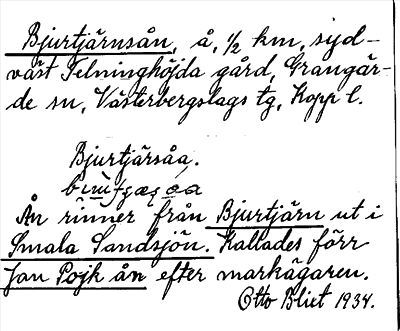 Bjurtjärnsån, å, 1/2 km, syd-
väst Telninghöjda gård, Grangär-
de sn, Västerbergslags tg, Kopp l.
Bjurtjärsåa.
Ån rinner från Bjurtjärn ut i
Smala Sandsjön. Kallades förr
Jan Pojk ån efter markägaren.
Otto Blixt 1934.